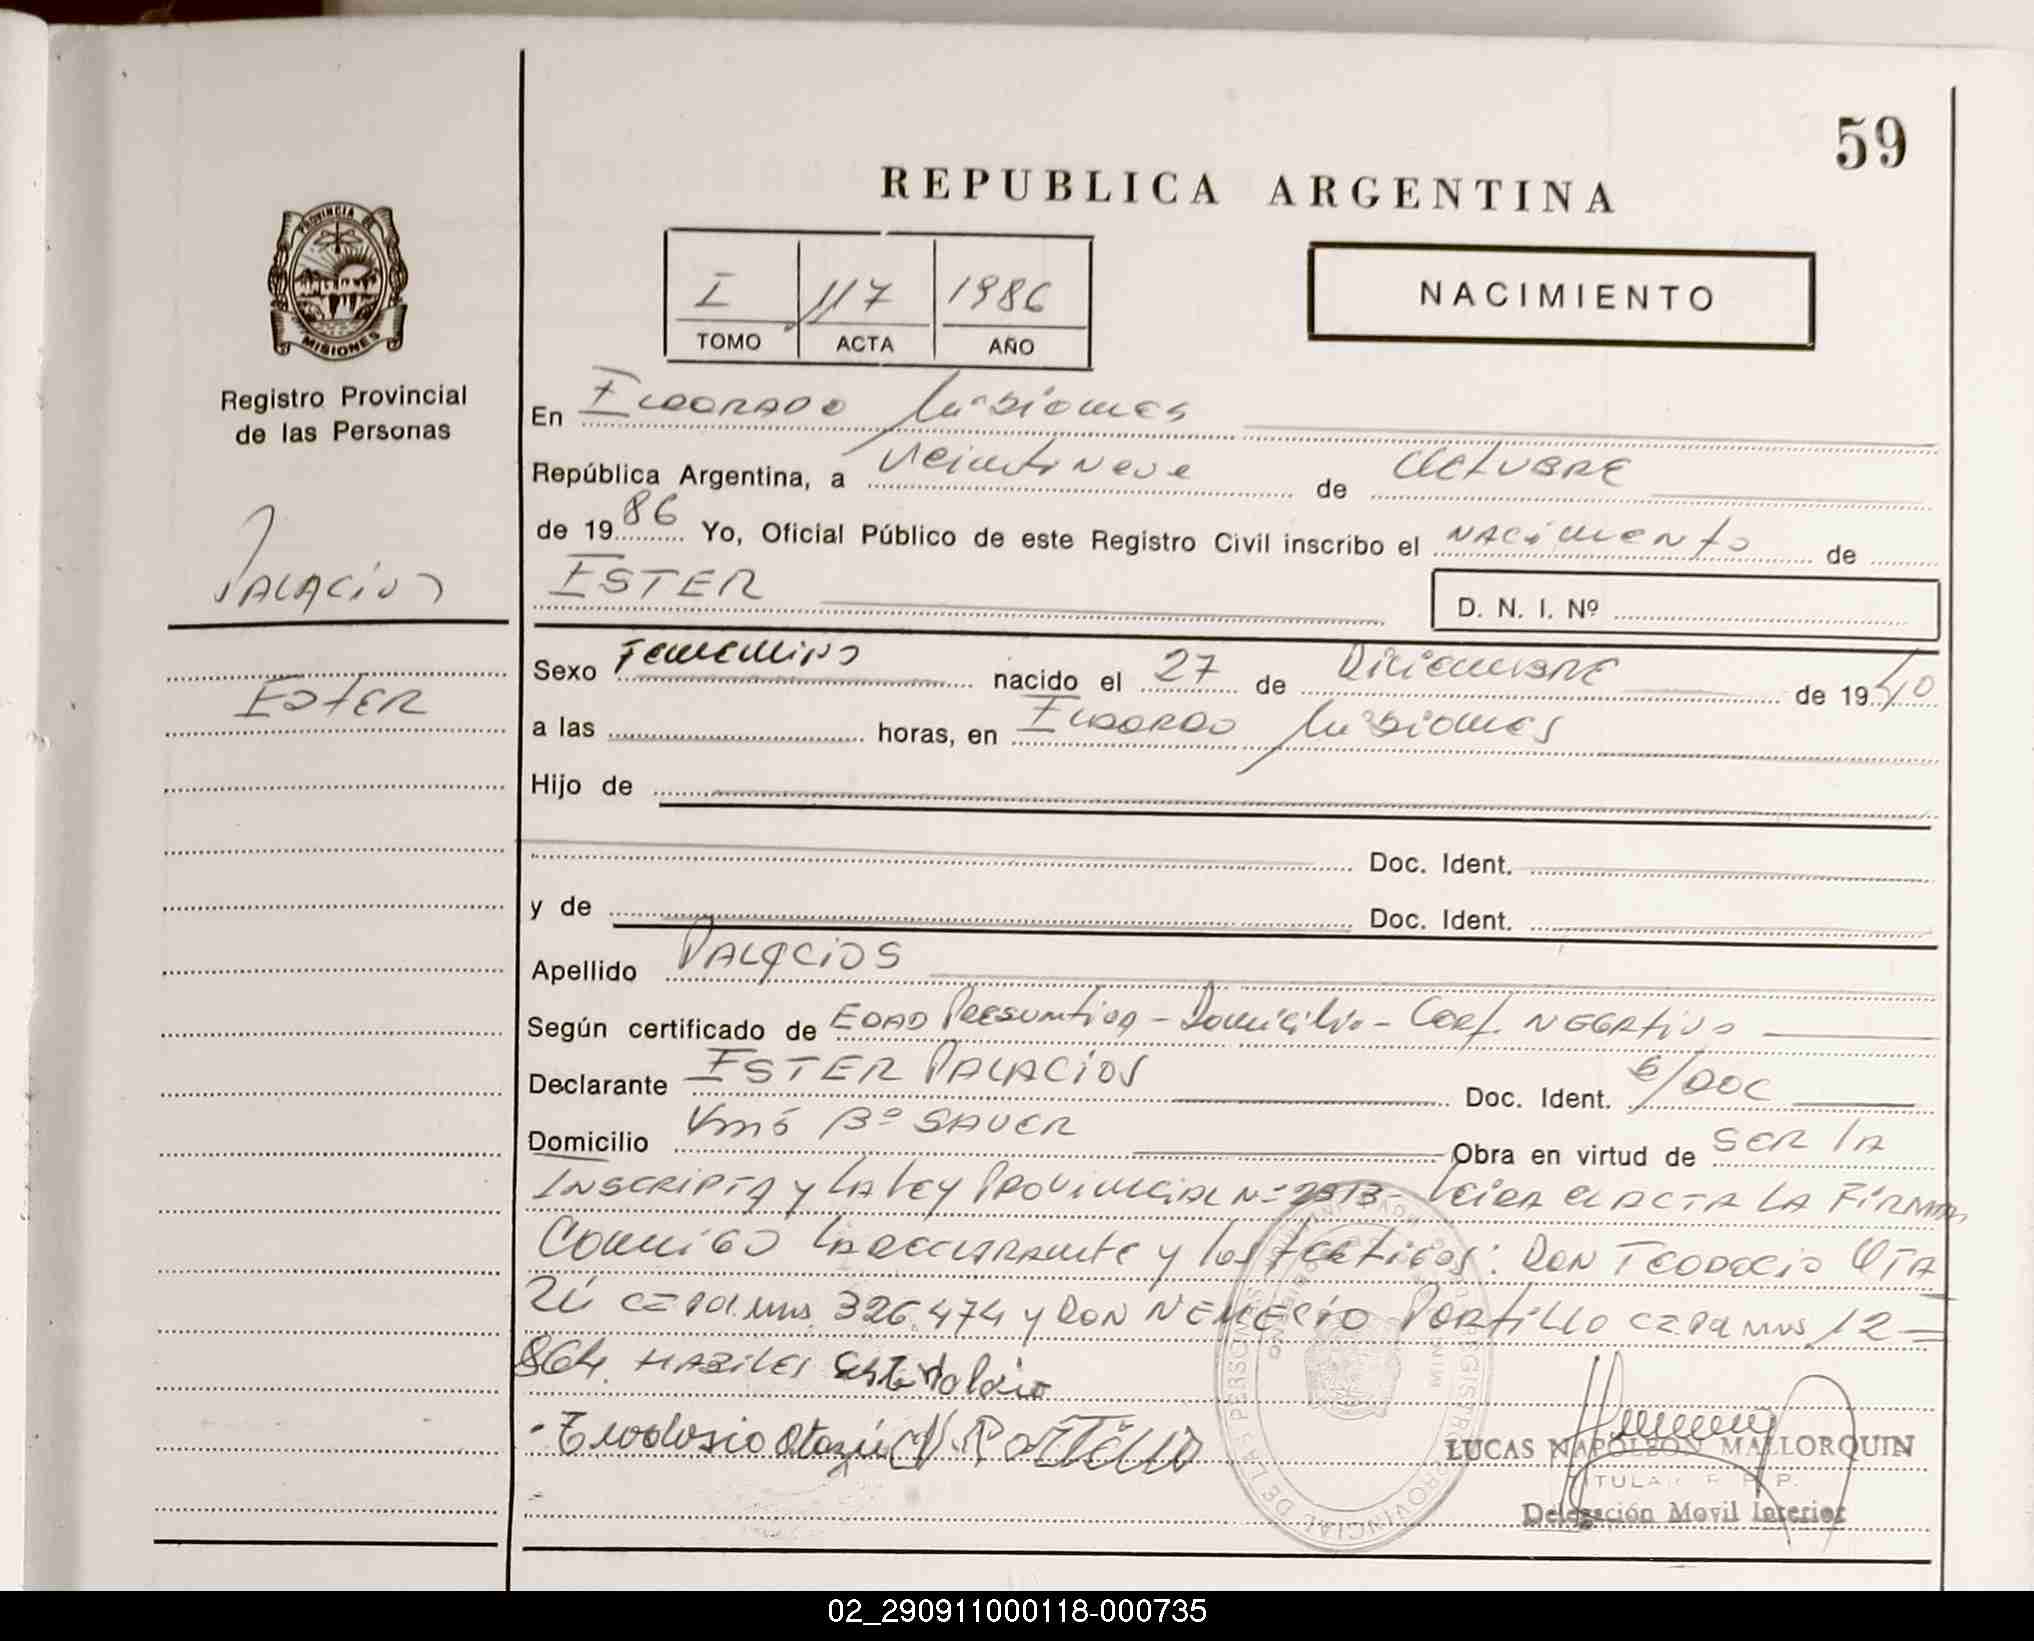 59
REPUBLICA ARGENTINA
PROVINCIA DE
MISIONES
I 117 1986
TOMO ACTA AÑO
NACIMIENTO
Registro Provincial
de las Personas
En ELDORADO Misiones
República Argentina, a Veintinueve de OCTUBRE
de 1986 Yo, Oficial Público de este Registro Civil inscribo el NACIMIENTO de
PALACIOS
ESTER
D. N. I. Nº
Sexo Femenino nacido el 27 de Diciembre de 1940
ESTER
a las horas, en Eldordo Misiones
Hijo de
Doc. Ident.
y de Doc. Ident.
Apellido PALACIOS
Según certificado de EDAD Presuntiva - Domicilio - Cert. NEGATIVO
Declarante ESTER PALACIOS Doc. Ident. S/DOC
Domicilio Bº SAUER Obra en virtud de SER LA
INSCRIPTA y LA Ley PROVINCIAL Nº 2313 - Leida el ACTA LA FIRMAN
Conmigo La declarante y los testigos: DON TEODOCIO OTA
ZÚ 326.474 y DON NEMECIO PORTILLO 12-
864. HABILES Ester Palacio
Teodosio Otazú N. Portillo
REGISTRO PROVINCIAL DE LAS PERSONAS
LUCAS NAPOLEON MALLORQUIN
TITULAR R. P. P.
Delegación Movil Interior
02_290911000118-000735